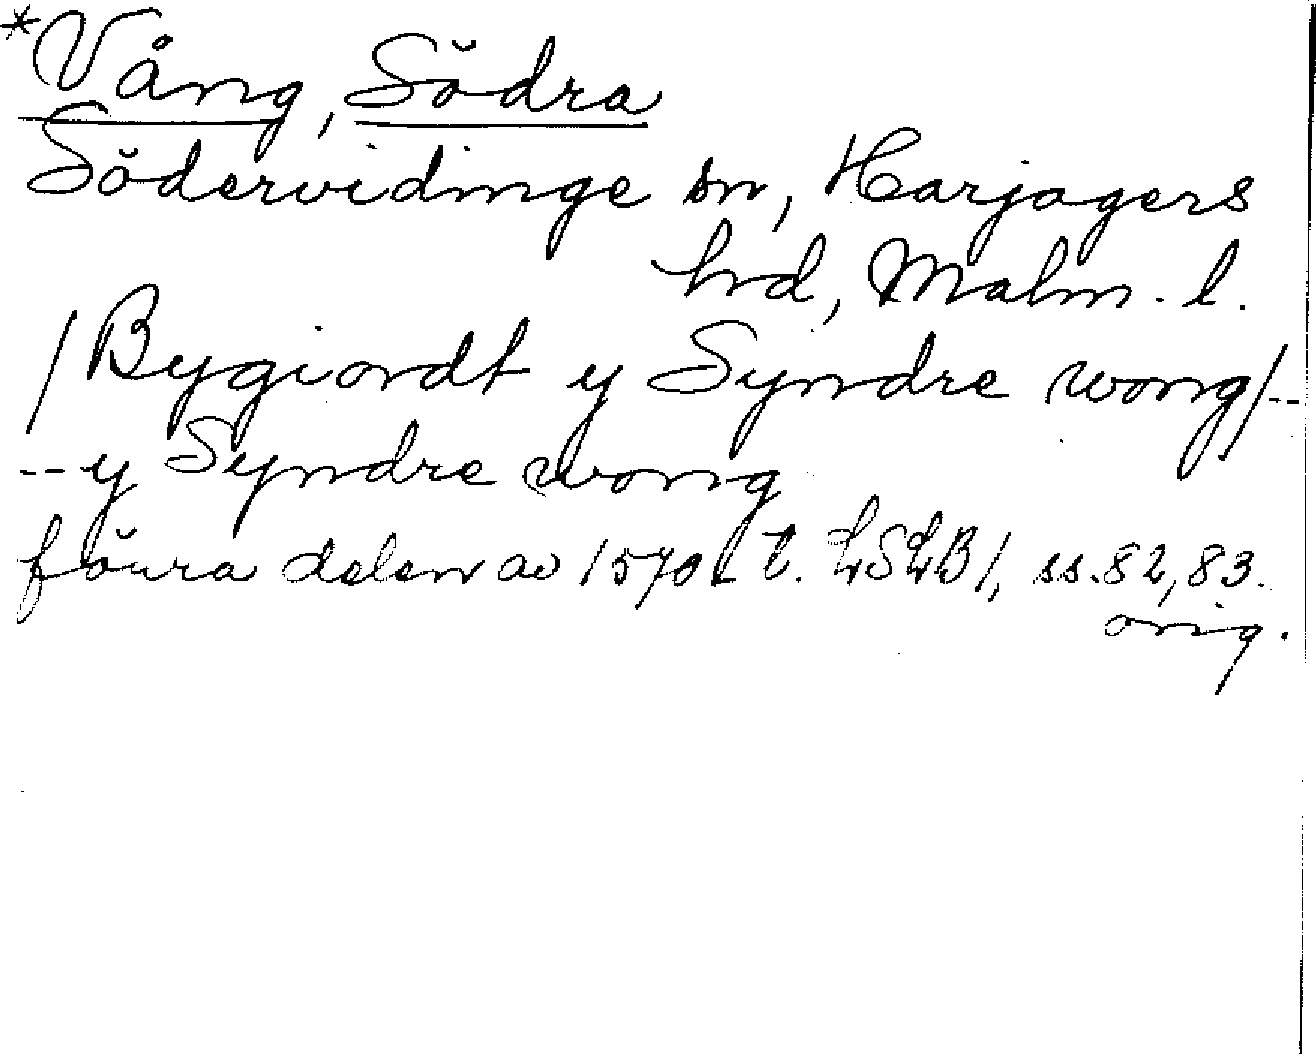 *Vång, Södra
Södervidinge sn, Harjagers
hrd, Malm. l.
/Bygiordt y Syndre wong/--
--y Syndre wong
förra delen av 1570 t. LSLB1, ss. 82, 83.
orig.